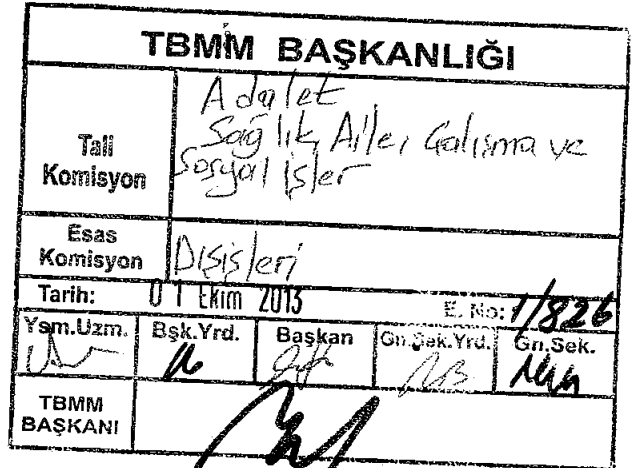 TBMM BAŞKANLIĞI
Tali Komisyon
Adalet
Sağlık, Aile, Çalışma ve
Sosyal İşler
Esas Komisyon
Dışişleri
Tarih: 01 Ekim 2013 E. No: 1/826
Ysm.Uzm. Bşk.Yrd. Başkan Gn.Sek.Yrd. Gn.Sek.
TBMM
BAŞKANI